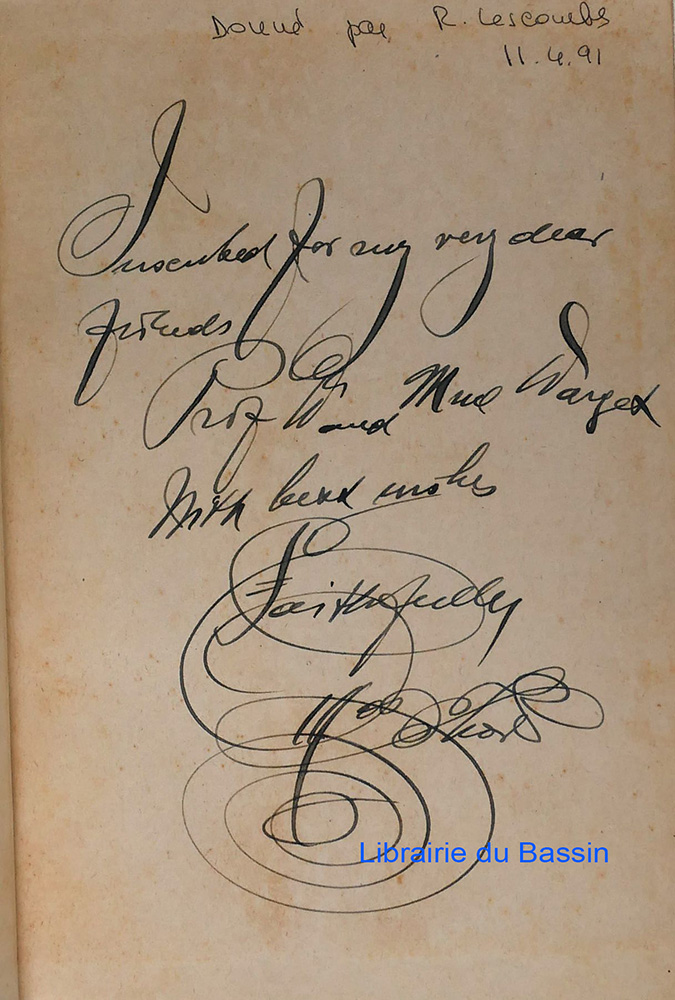 Donné par R. Lescombs
11.4.91
Inscribed for my very dear
friends
Prof and Mme Warget
With best wishes
Faithfully
Librairie du Bassin